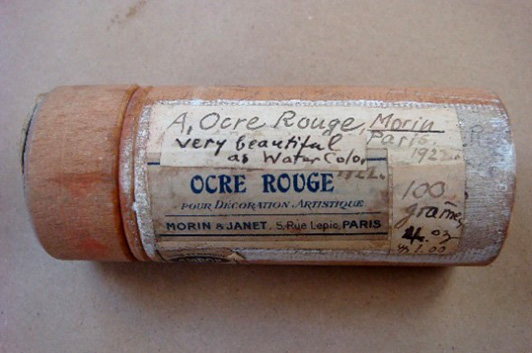 A, Ocre Rouge, Morin
very beautiful Paris,
as Water Color 1922.
1922.
OCRE ROUGE
POUR DÉCORATION ARTISTIQUE
MORIN & JANET, 5, Rue Lepic, PARIS
100
grames
4. oz